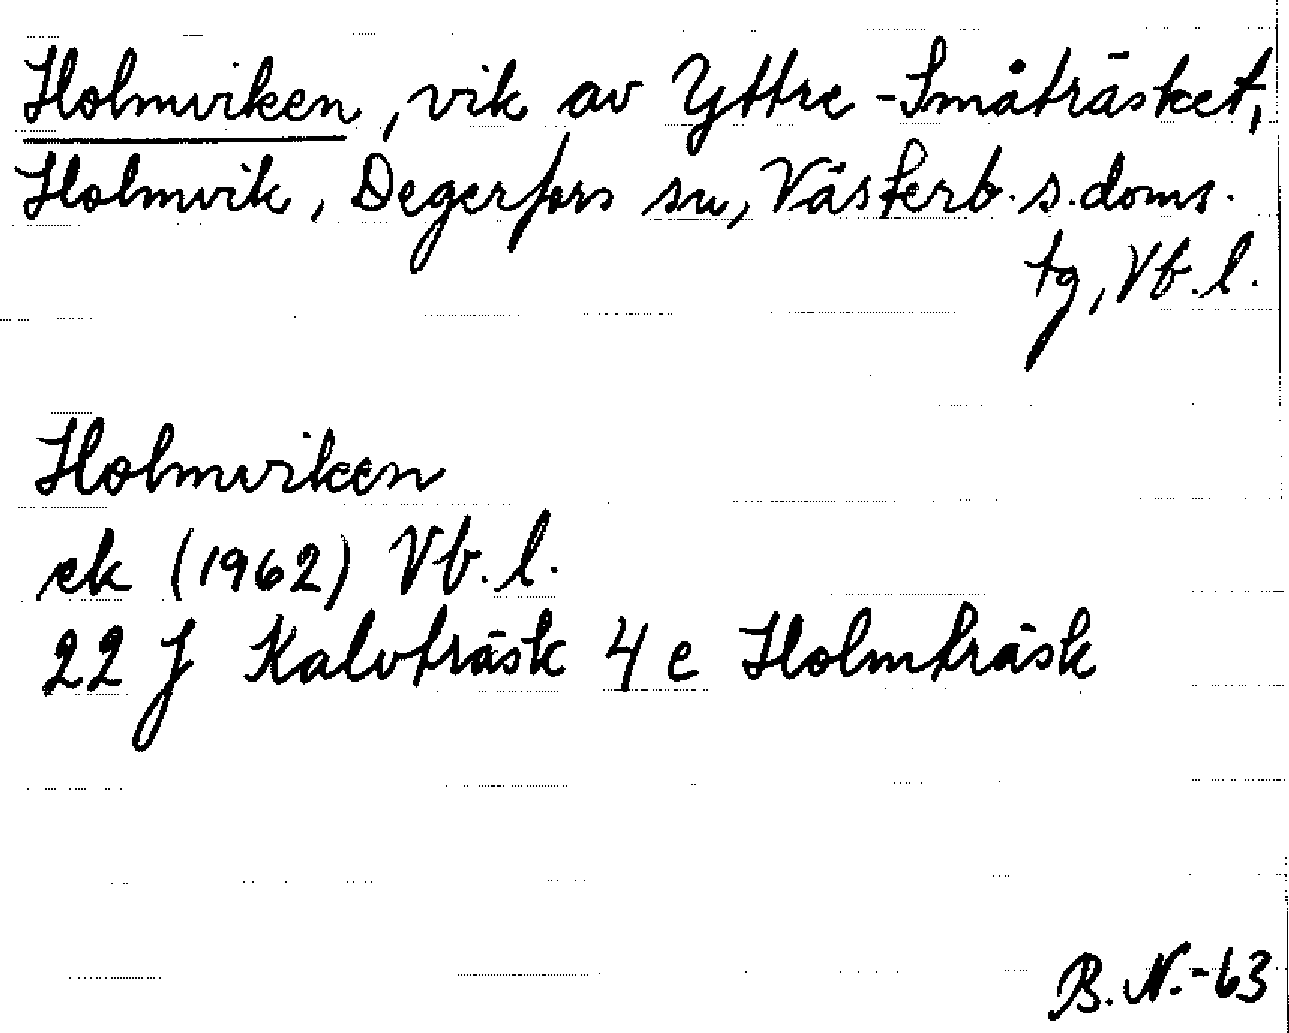 Holmviken, vik av Yttre-Småträsket,
Holmvik, Degerfors sn, Västerb. s. doms.
tg, Vb. l.
Holmviken
ek (1962) Vb. l.
22 J Kalvträsk 4 e Holmträsk
B. N.-63